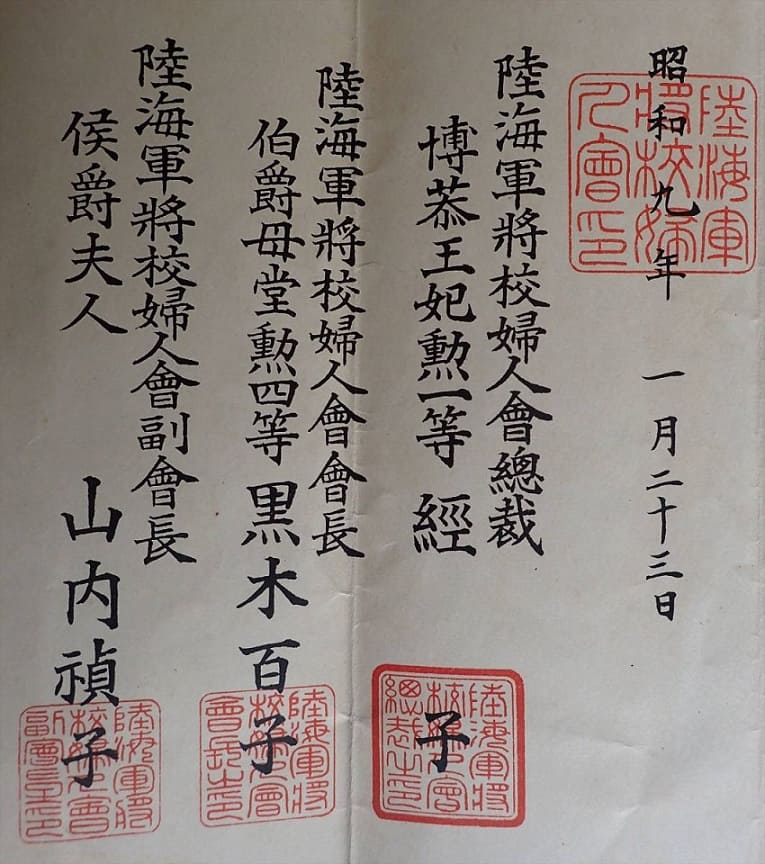 昭和九年 一月二十三日
陸海軍將校婦人會印
陸海軍將校婦人會總裁
博恭王妃勲一等 經子
陸海軍將校婦人會總裁之印
陸海軍將校婦人會會長
伯爵母堂勲四等 黒木百子
陸海軍將校婦人會會長之印
陸海軍將校婦人會副會長
侯爵夫人 山内禎子
陸海軍將校婦人會副會長之印